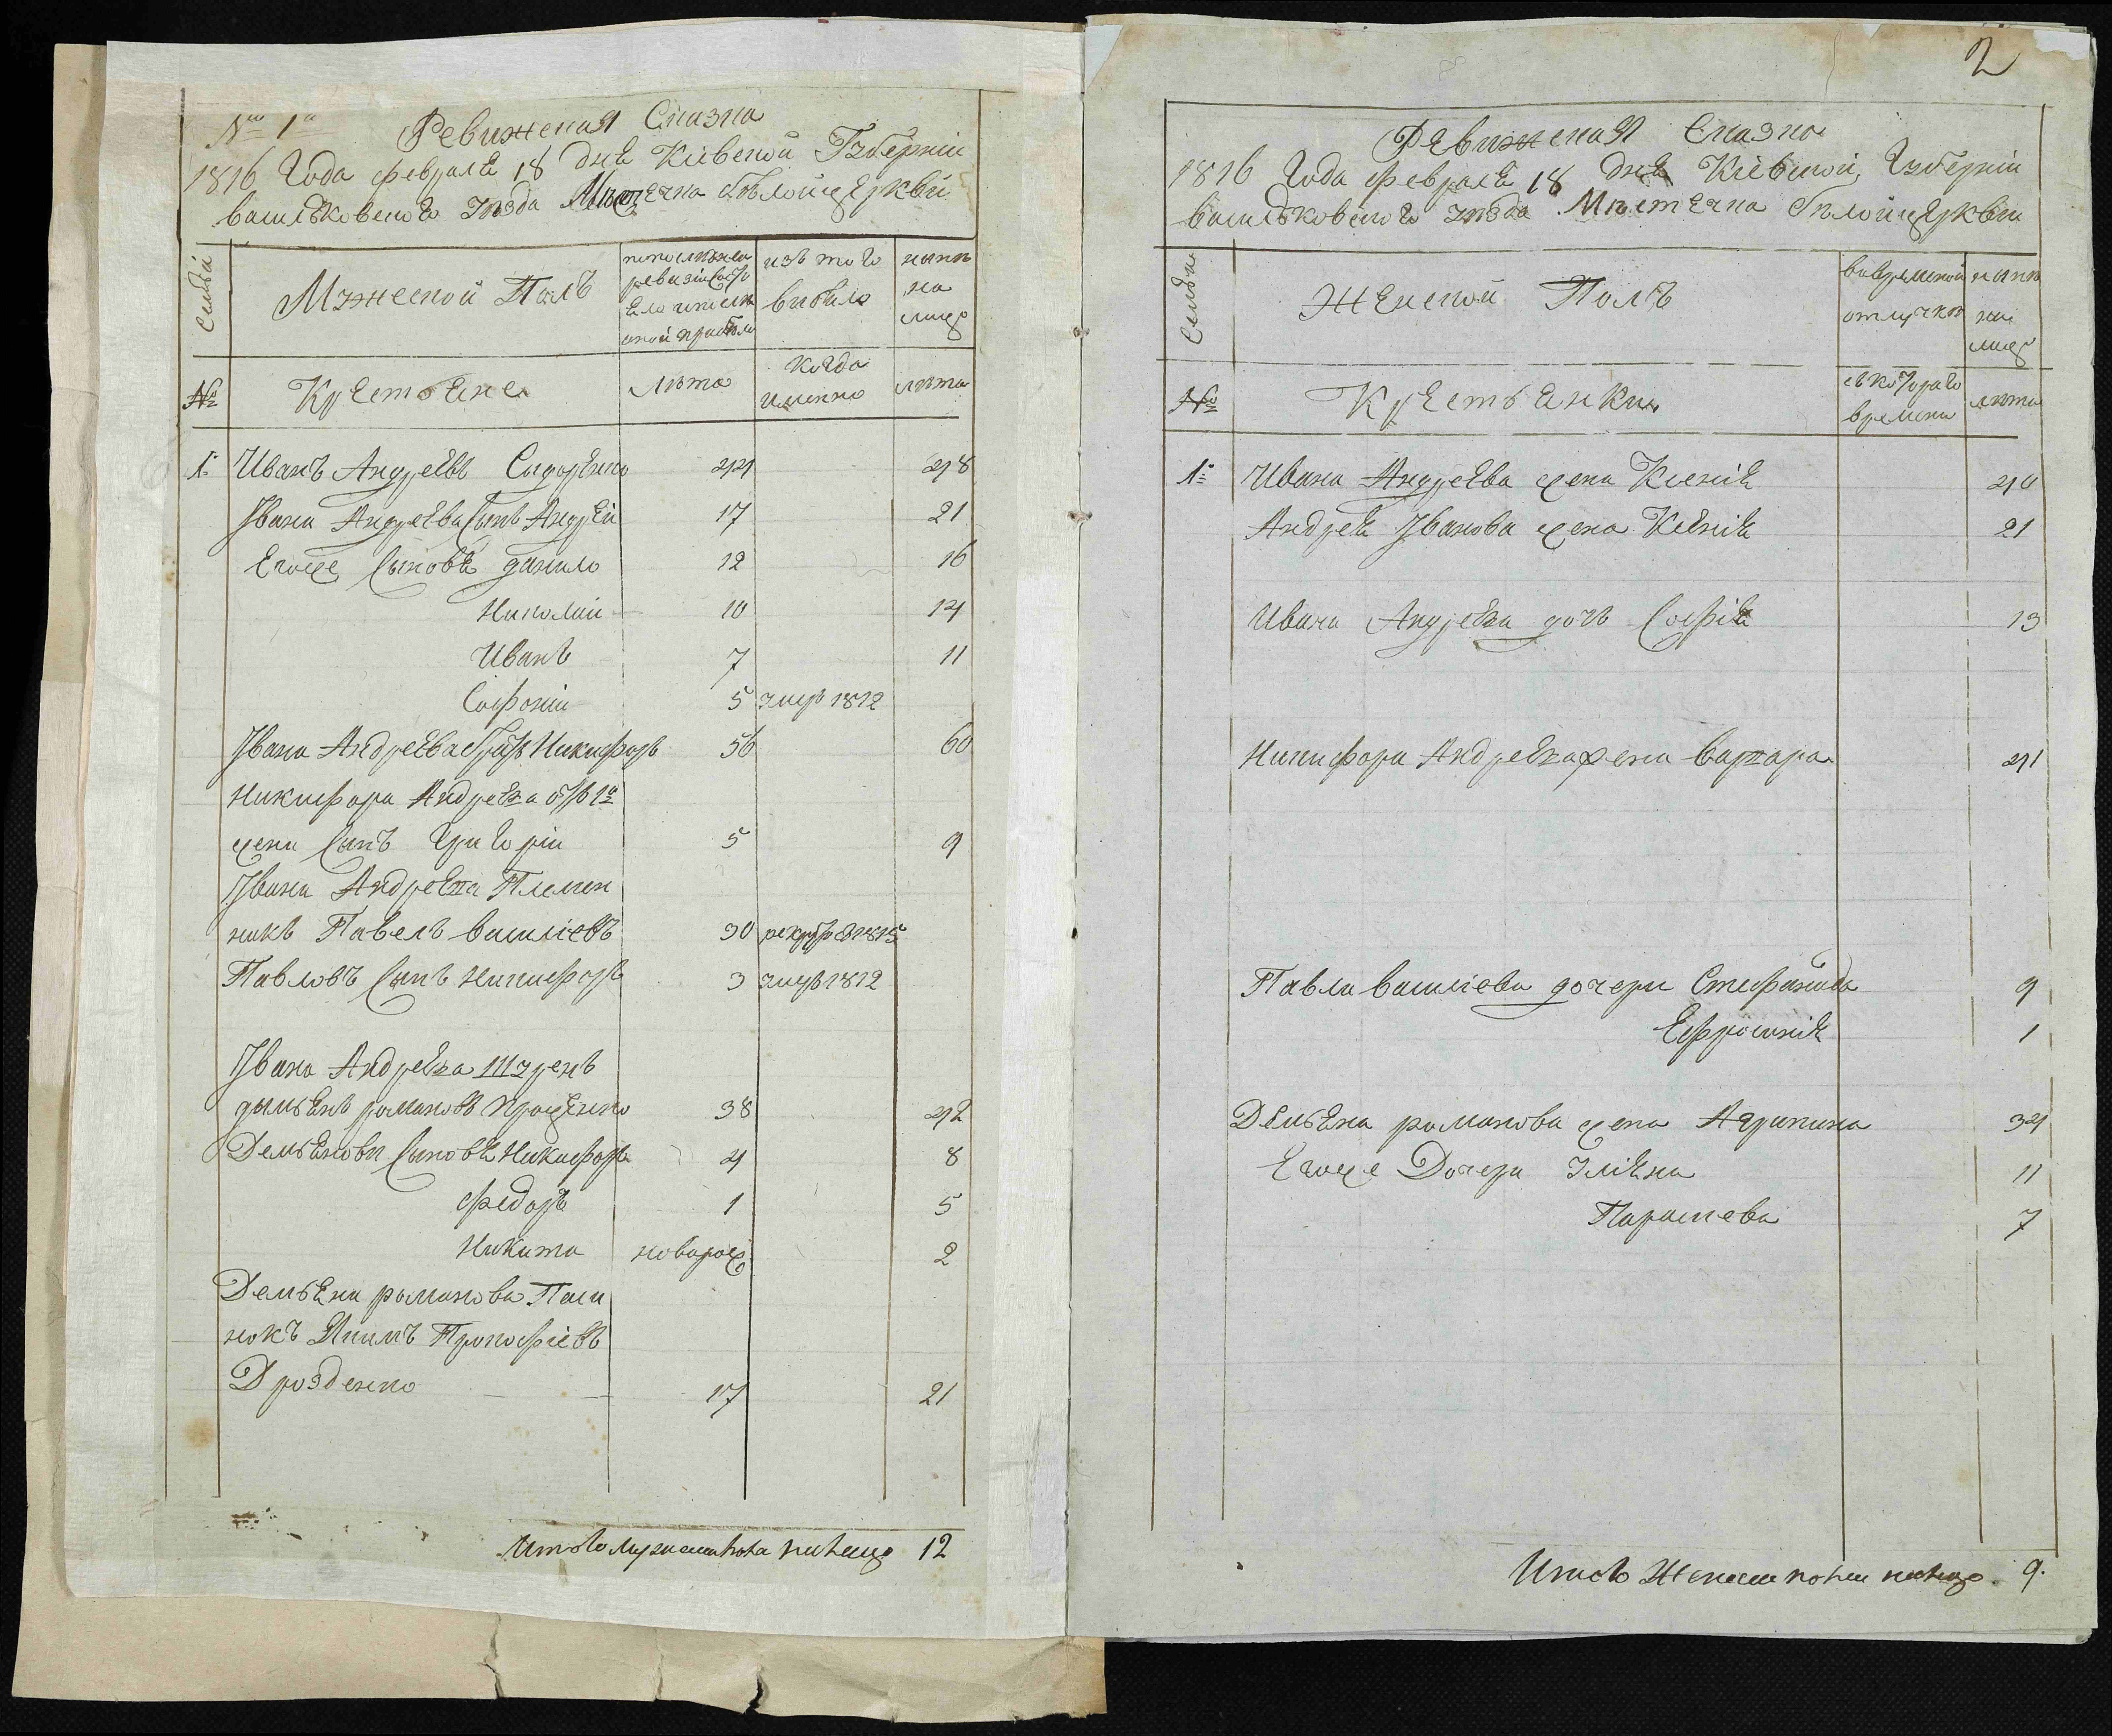 № 1й Ревижская Сказка
1816 Года февраля 18 дня Кіевской Губерніи
васильковского уѣзда Мѣстечка бѣлойцеркви
Семьи
Мужеской Полъ
попослѣдней ревизіи состояло и послѣ оной прибыло
изъ того выбыло
нынѣ на лицо
№
Крестьяне
лѣта
когда именно
лѣта
1й Иванъ Андреевъ Сидоренко 44 48
Ивана Андреева Сынъ Андрей 17 21
Егоже Сыновья данило 12 16
Николай 10 14
Иванъ 7 11
Софоній 5 умръ 1812
Ивана Андреева братъ Никифоръ 56 60
Никифора Андреева отъ 1й
жени Сынъ Григорій 5 9
Ивана Андреева Племен
никъ Павелъ василіевъ 30 рекрут въ 1815
Павловъ Сынъ Никифоръ 3 умръ 1812
Ивана Андреева Шуренъ
дымьянъ романовъ проценко 38 42
Демьянови Сыновья Никифоръ 4 8
Федоръ 1 5
Никита новорож 2
Демьяна романова Паси
нокъ Якимъ Прокофіевъ
Дрозденко 17 21
Итого мужеска пола налицо 12
2
Ревижская Сказка
1816 Года февраля 18 дня Кіевской Губерніи
васильковского уѣзда Мѣстечка бѣлойцеркви
Семьи
Женской Полъ
вовременной отлучкѣ
нынѣ на лицо
№
Крестьянки
съ котораго времени
лѣта
1й Ивана Андреева жена Ксенія 40
Андрея Иванова жена Ксенія 21
Ивана Андреева дочь Софія 13
Никифора Андреева жена варвара 41
Павла василіева дочери Стефанида 9
Ефросинія 1
Демьяна романова жена Агрипина 34
Егоже Дочери Уліяна 11
Параскева 7
Итого Женска пола налицо 9.